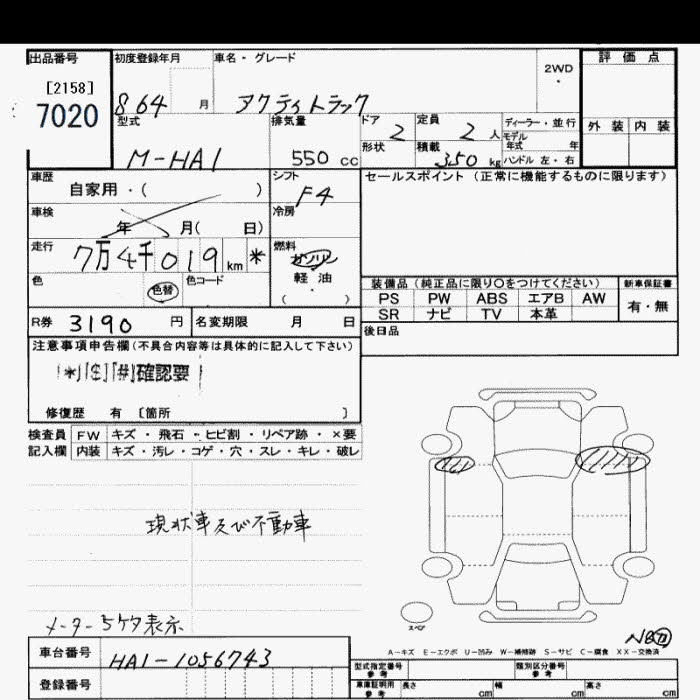 出品番号
[2158]
7020
初度登録年月
S 64 月
車名・グレード
アクティトラック
2WD
評価点
外装 内装
型式
M-HA1
排気量
550 cc
ドア 2
定員 2 人
ディーラー・並行
モデル
年式 年
形状
積載 350 kg
ハンドル 左・右
車歴
自家用・( )
シフト
F4
セールスポイント(正常に機能するものに限ります)
車検
年 月( 日)
冷房
走行
7万4千019 km *
燃料
ガソリン
軽油
・
( )
色
色替
色コード
装備品(純正品に限り〇をつけてください)
新車保証書
PS PW ABS エアB AW
SR ナビ TV 本革
有・無
R券 3190 円
名変期限 月 日
後日品
注意事項申告欄(不具合内容等は具体的に記入して下さい)
[*][$][#]確認要
修復歴 有 〔箇所 〕
検査員 FW キズ・飛石・ヒビ割・リペア跡・×要
記入欄 内装 キズ・汚レ・コゲ・穴・スレ・キレ・破レ
現状車及び不動車
メーター5ケタ表示
スペア
A-キズ E-エクボ U-凹み W-補修跡 S-サビ C-腐食 XX-交換済
車台番号 HA1-1056743
登録番号
型式指定番号
参考
類別区分番号
参考
車庫証明用
参考
長さ cm 幅 cm 高さ cm